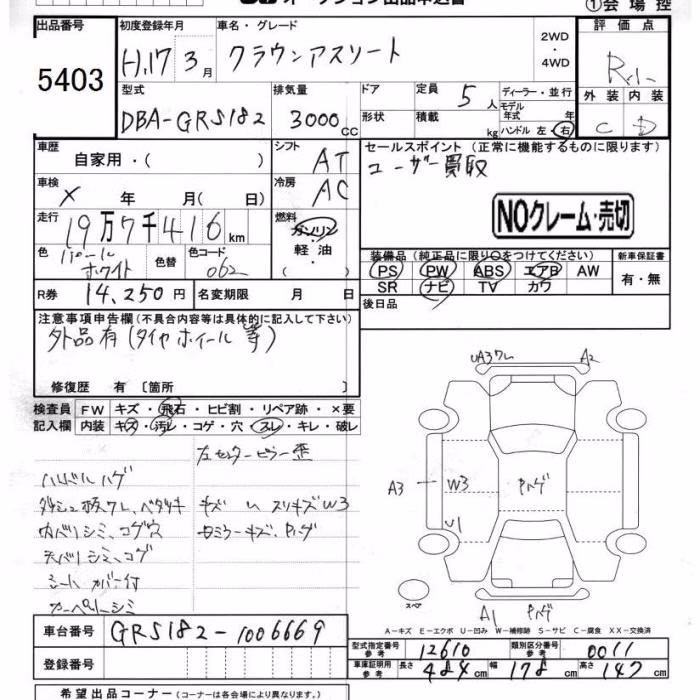 ①会場控
出品番号 初度登録年月 車名・グレード 2WD・4WD 評価点
5403 H.17 3月 クラウンアスリート
型式 排気量 ドア 定員 ディーラー・並行 外装 内装
DBA-GRS182 3000cc 5人 モデル年式 年 C D
形状 積載 kg ハンドル 左・右
車歴 シフト セールスポイント (正常に機能するものに限ります)
自家用・( ) AT ユーザー買取
車検 冷房
× 年 月( 日) AC
NOクレーム・売切
走行 燃料
19万7千416km ガソリン
軽油
( )
色 パールホワイト 色替 色コード 062
装備品 (純正品に限り○をつけてください) 新車保証書
PS PW ABS エアB AW 有・無
SR ナビ TV カワ
R券 14,250円 名変期限 月 日 後日品
注意事項申告欄 (不具合内容等は具体的に記入して下さい)
外品有(タイヤホイール等)
修復歴 有〔箇所 〕
検査員 FW キズ・飛石・ヒビ割・リペア跡・×要
記入欄 内装 キズ・汚レ・コゲ・穴・スレ・キレ・破レ
左センターピラー歪
ハンドルハゲ
ダッシュ板ワレ、ベタツキ
キズ
スリキズW3
内バリシミ、コゲ穴
天バリシミ、コゲ
シートカバー付
カーペットシミ
UA3ワレ A2
A3 W3 Pハゲ
U1
スペア
A1 Pハゲ
A-キズ E-エクボ U-凹み W-補修跡 S-サビ C-腐食 XX-交換済
車台番号 GRS182-1006669
型式指定番号 参考 12610 類別区分番号 参考 0011
登録番号
車庫証明用 参考 長さ 484cm 幅 178cm 高さ 147cm
希望出品コーナー (コーナーは各会場により異なります。)